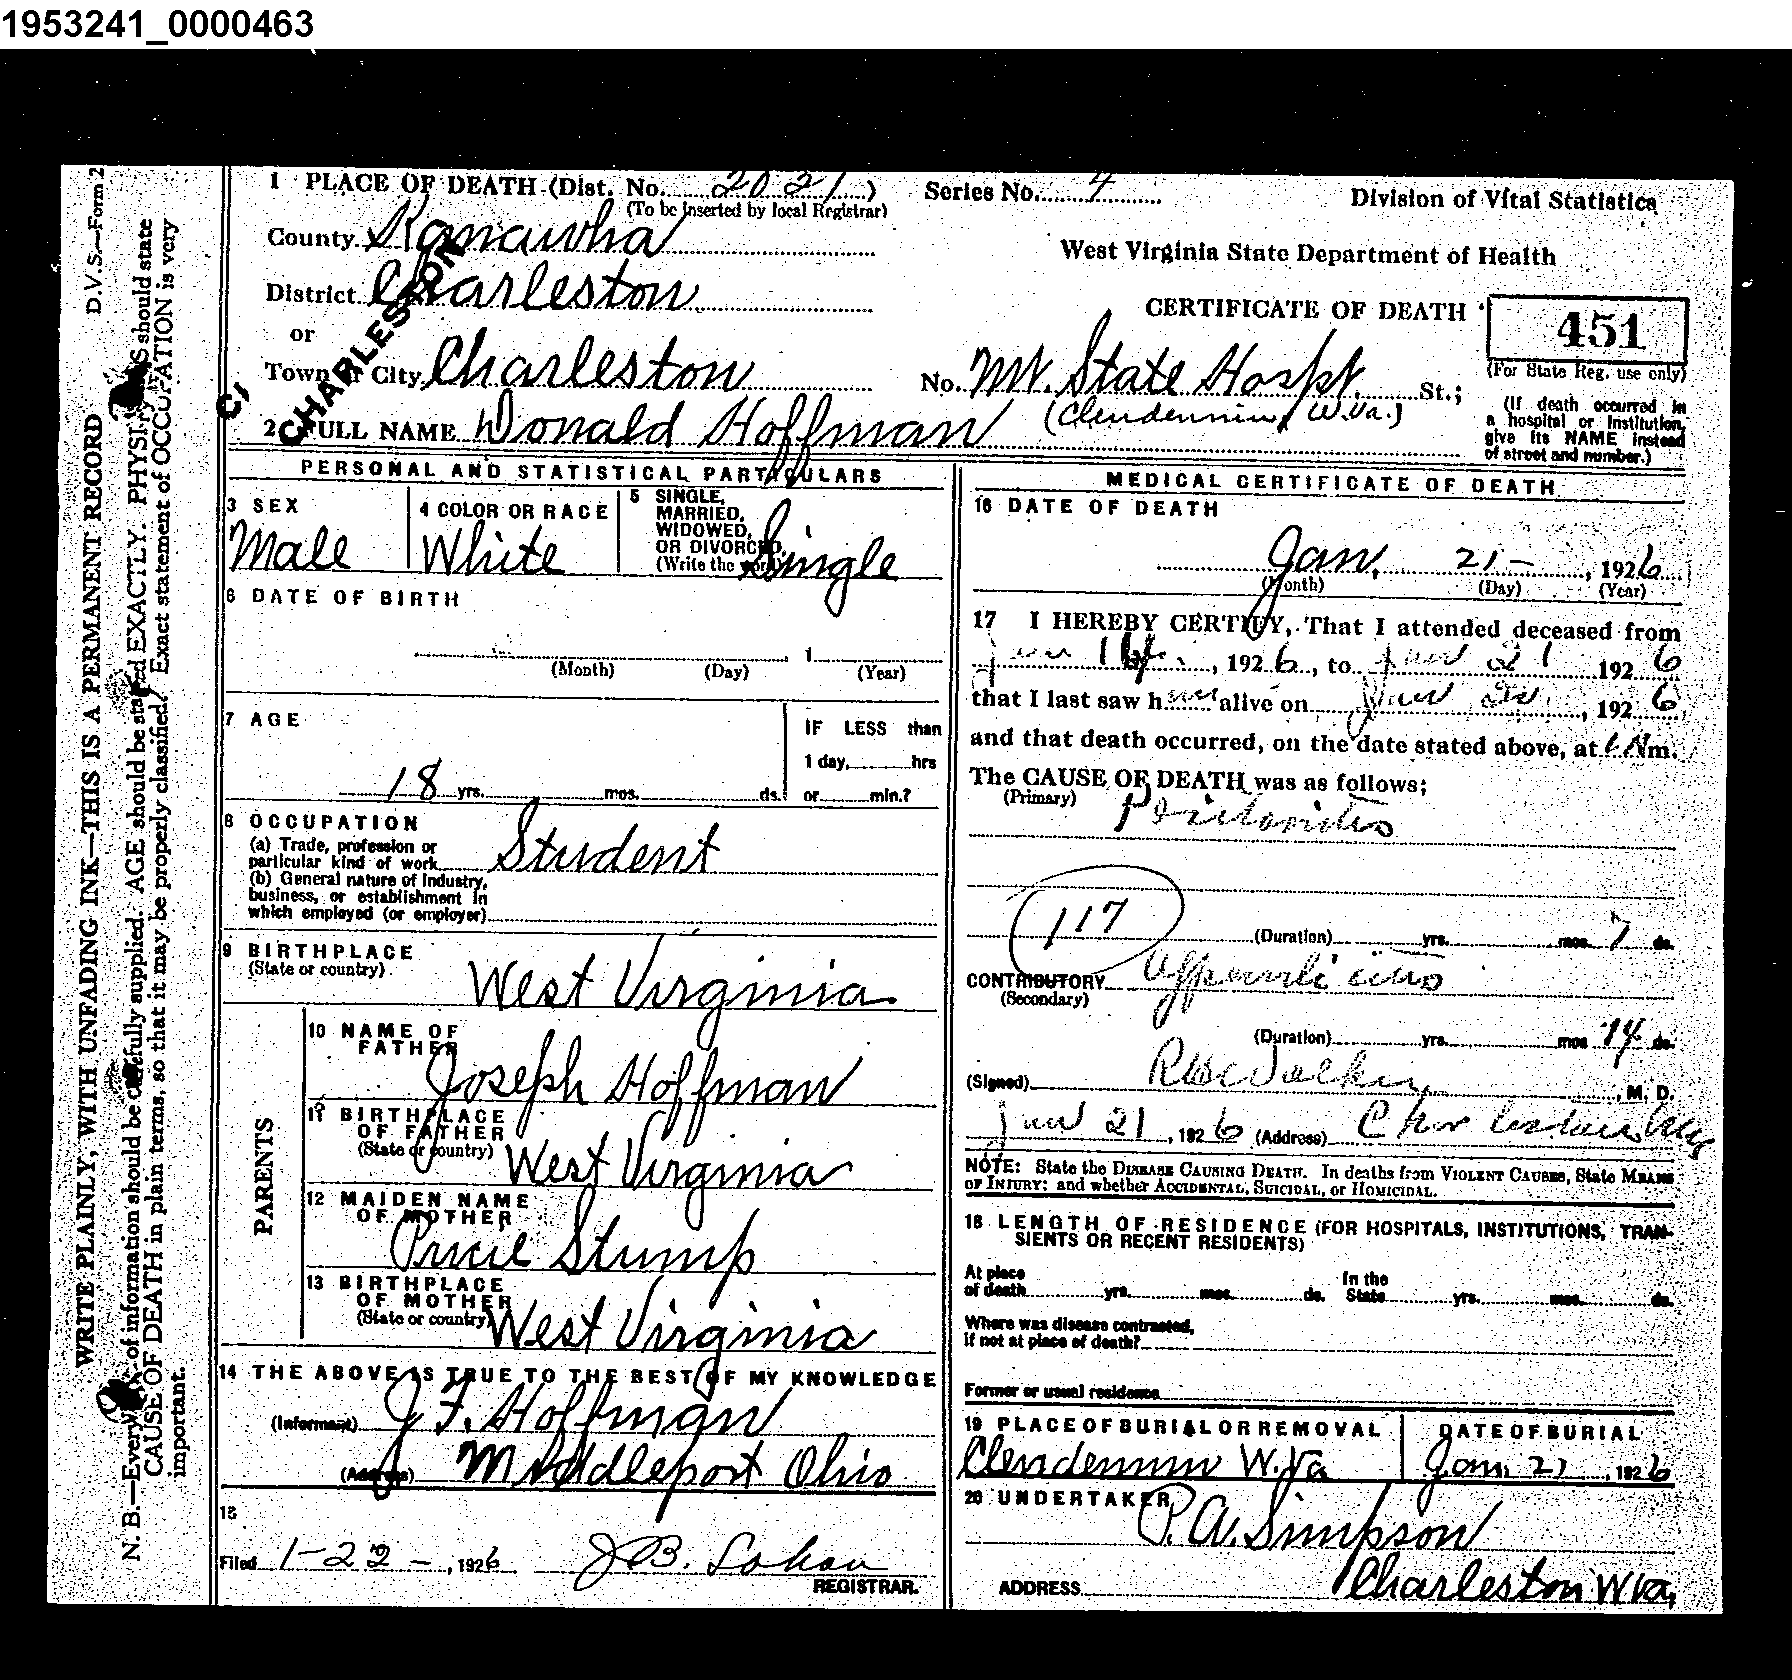 1953241_0000463
1 PLACE OF DEATH (Dist. No. 2021)
(To be inserted by local Registrar)
Series No. 4
Division of Vital Statistics
County Kanawha
West Virginia State Department of Health
District Charleston
CERTIFICATE OF DEATH
451
(For State Reg. use only)
or
Town or City Charleston
No. Mt. State Hospt. St.;
(Clendennin, W.Va.)
(If death occurred in
a hospital or institution,
give its NAME instead
of street and number.)
CHARLESTON
CI
2 FULL NAME Donald Hoffman
PERSONAL AND STATISTICAL PARTICULARS
3 SEX
Male
4 COLOR OR RACE
White
5 SINGLE,
MARRIED,
WIDOWED,
OR DIVORCED
(Write the word)
Single
6 DATE OF BIRTH
1
(Month) (Day) (Year)
7 AGE
18 yrs. mos. ds.
IF LESS than
1 day, hrs
or min.?
8 OCCUPATION
(a) Trade, profession or
particular kind of work Student
(b) General nature of industry,
business, or establishment in
which employed (or employer)
9 BIRTHPLACE
(State or country)
West Virginia
PARENTS
10 NAME OF
FATHER
Joseph Hoffman
11 BIRTHPLACE
OF FATHER
(State or country) West Virginia
12 MAIDEN NAME
OF MOTHER
Stump
13 BIRTHPLACE
OF MOTHER
(State or country) West Virginia
14 THE ABOVE IS TRUE TO THE BEST OF MY KNOWLEDGE
(Informant) J.F. Hoffman
(Address) Middleport Ohio
15
Filed 1-22-, 1926 J.B.
REGISTRAR.
MEDICAL CERTIFICATE OF DEATH
16 DATE OF DEATH
Jan. 21-, 1926
(Month) (Day) (Year)
17 I HEREBY CERTIFY, That I attended deceased from
Jan 14, 1926, to Jan 21 1926
that I last saw him alive on Jan 20, 1926
and that death occurred, on the date stated above, at m.
The CAUSE OF DEATH was as follows;
(Primary)
Peritonitis
117
(Duration) yrs. mos. 7 ds.
CONTRIBUTORY Appendicitis
(Secondary)
(Duration) yrs. mos 14 ds.
(Signed) Walker, M. D.
Jan 21, 1926 (Address) Charleston W Va
NOTE: State the DISEASE CAUSING DEATH. In deaths from VIOLENT CAUSES, State MEANS
OF INJURY; and whether ACCIDENTAL, SUICIDAL, or HOMICIDAL.
18 LENGTH OF RESIDENCE (FOR HOSPITALS, INSTITUTIONS, TRAN-
SIENTS OR RECENT RESIDENTS)
At place
of death yrs. mos. ds.
In the
State yrs. mos. ds.
Where was disease contracted,
if not at place of death?
Former or usual residence
19 PLACE OF BURIAL OR REMOVAL
Clendennin W.Va
DATE OF BURIAL
Jan. 21, 1926
20 UNDERTAKER
P.A. Simpson
ADDRESS Charleston W Va,
D.V.S.—Form 2
WRITE PLAINLY, WITH UNFADING INK—THIS IS A PERMANENT RECORD
N. B.—Every of information should be carefully supplied. AGE should be stated EXACTLY. PHYSICIANS should state
CAUSE OF DEATH in plain terms, so that it may be properly classified. Exact statement of OCCUPATION is very
important.